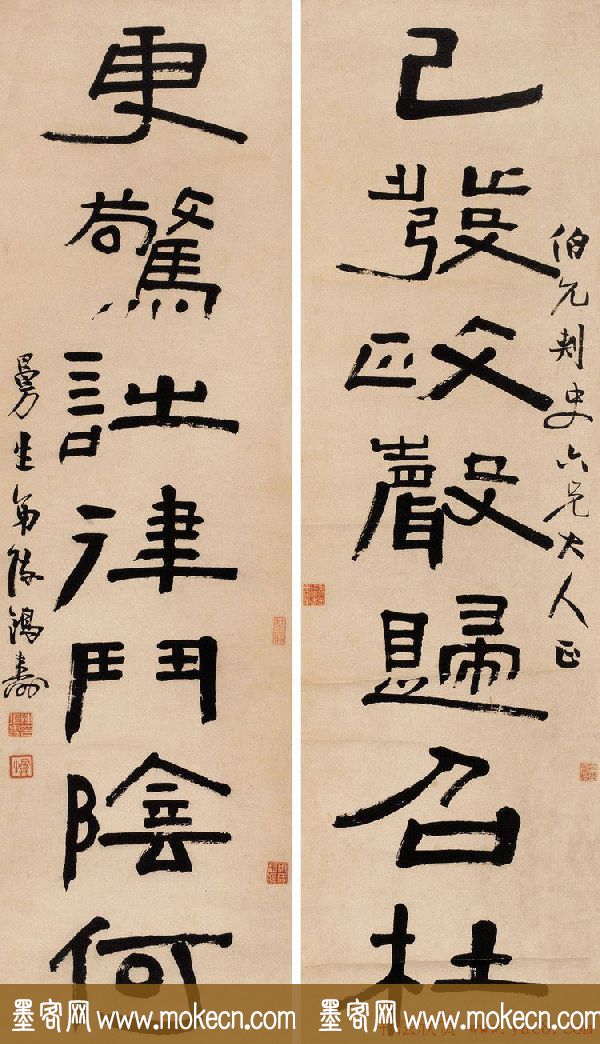 伯允刺史六兄大人正
已發政聲歸召杜
更驚詩律鬥陰何
曼生弟陳鴻壽
墨客网 www.mokecn.com
墨客网 www.mokecn.com